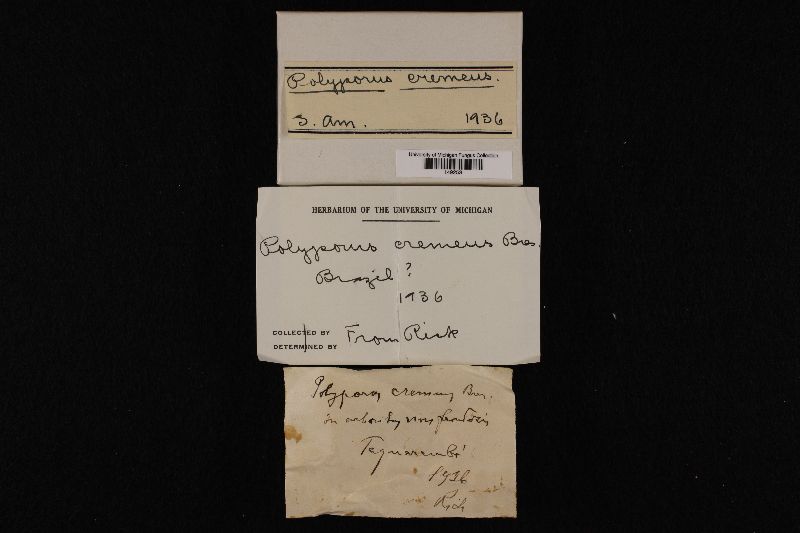 Polyporus cremeus.
S. Am. 1936
University of Michigan Fungus Collection
HERBARIUM OF THE UNIVERSITY OF MICHIGAN
Polyporus cremeus Bres.
Brazil?
1936
COLLECTED BY
DETERMINED BY
From Rick
Polyporus cremeus Bres.
in arboribus
1936
Rick